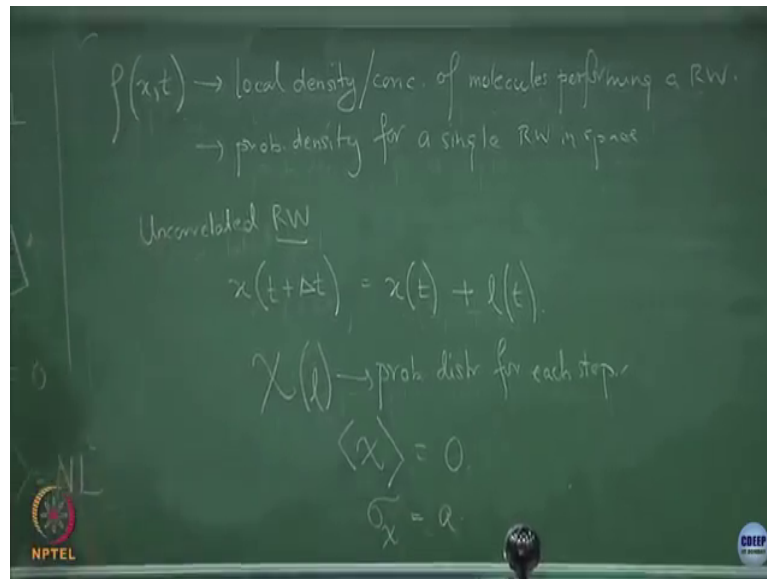 ρ(x,t) → local density/conc. of molecules performing a RW.
→ prob. density for a single RW in space
Uncorrelated RW
x(t+Δt) = x(t) + l(t).
χ(l) → prob. distr for each step.
= 0
⟨χ⟩ = 0.
NL
σχ = a.
NPTEL
CDEEP
IIT BOMBAY